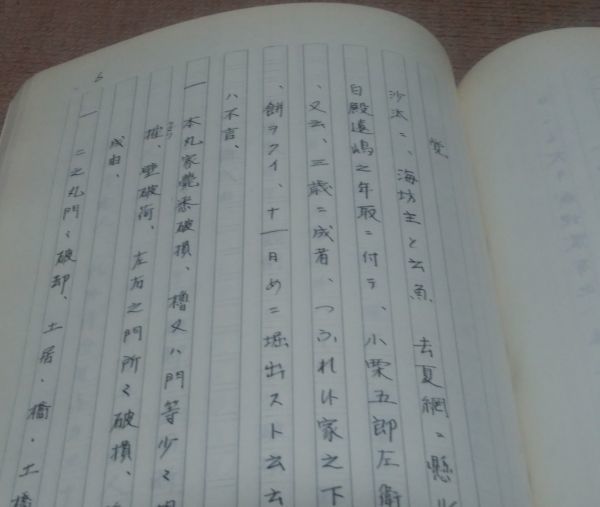 覚
沙汰ニ、海坊主と云魚、去夏網ニ懸
白殿遠嶋之年取ニ付テ、小栗五郎左衛
、又云、三歳ニ成者、つふれ候家之下
、餅ヲクイ、十一日めニ堀出スト云
ハ不言、
一 本丸家甍悉破損、櫓又ハ門等少々
摧、壁破商、左右之門所々破損、
成由、
一 二之丸門々破却、土居・橋・土橋
6